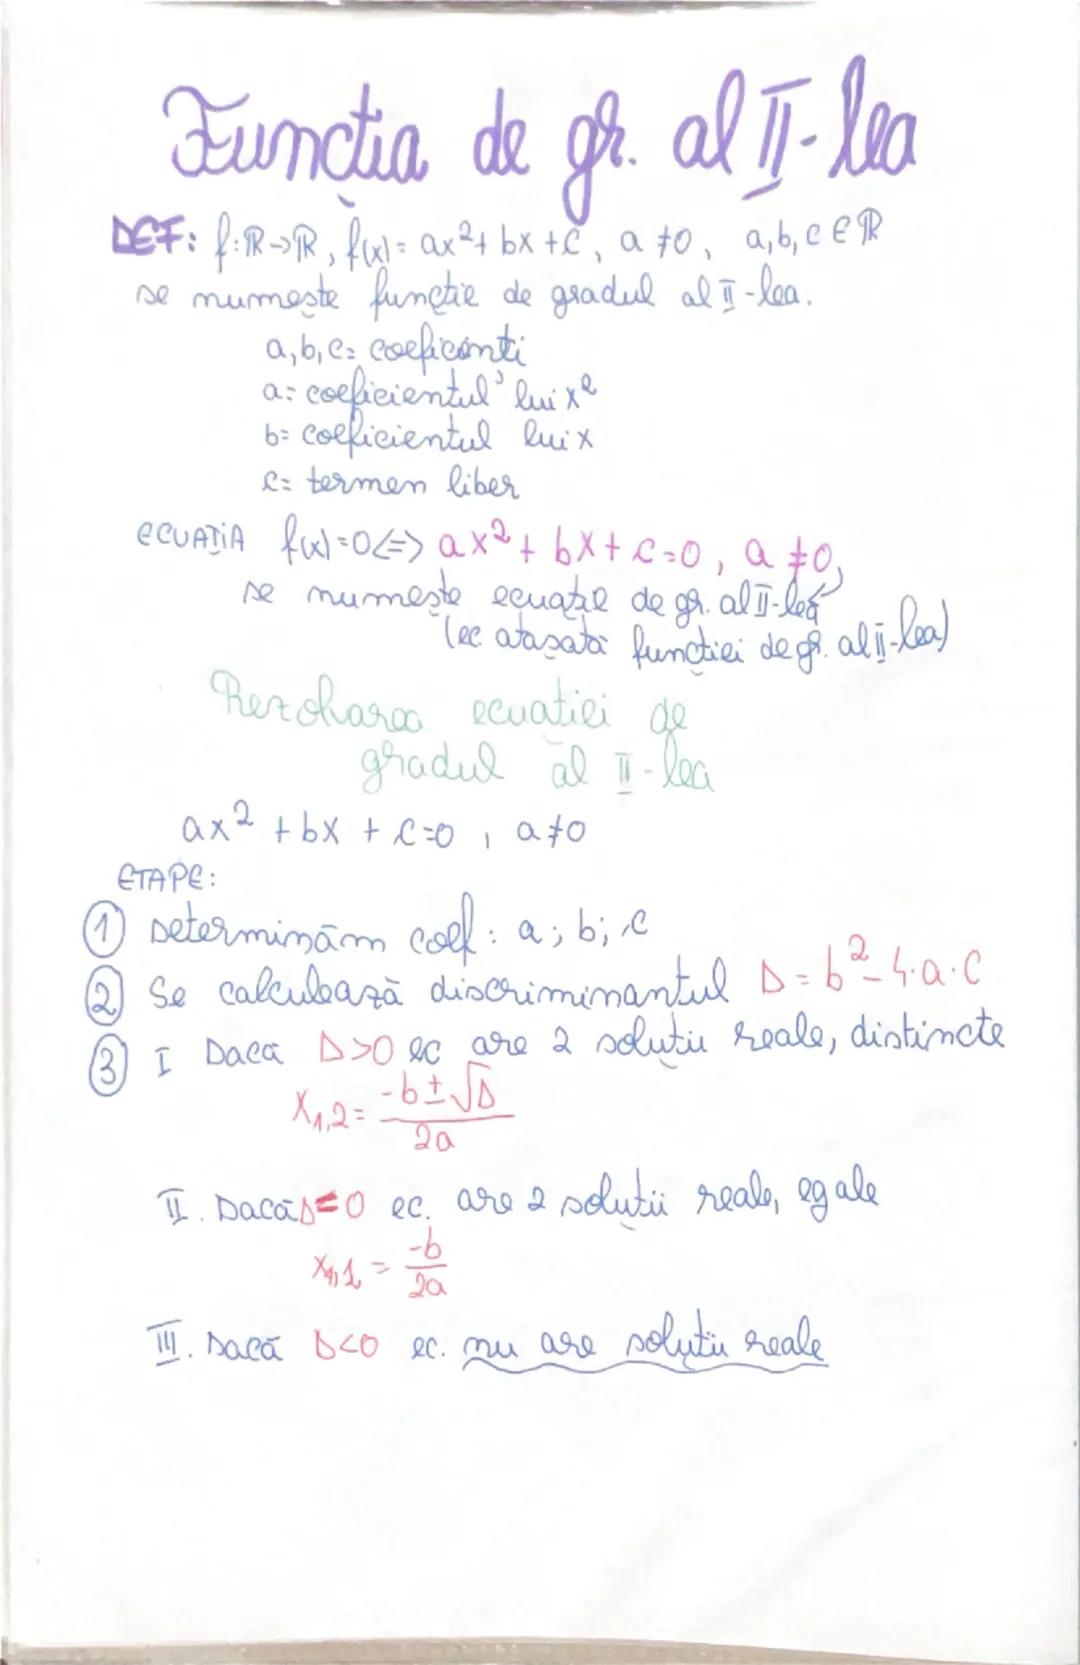 Funcția de gr. al II-lea
DEF: f:ℝ→ℝ, f(x)= ax²+ bx +c, a ≠0, a,b,c ∈ ℝ
se numește funcție de gradul al II-lea.
a,b,c= coeficenți
a= coeficientul lui x²
b= coeficientul lui x
c= termen liber
ECUAȚIA f(x)=0<=> ax²+ bx+c=0, a ≠0,
se numește ecuație de gr. al II-lea
(ec atașată funcției de gr. al II-lea)
Rezolvarea ecuației de
gradul al II-lea
ax² +bx + c=0, a≠0
ETAPE:
① Determinăm coef: a; b; c
② Se calculează discriminantul Δ = b²-4·a·c
③ I Dacă Δ>0 ec are 2 soluții reale, distincte
x₁,₂= (-b±√Δ)/2a
II. Dacă Δ=0 ec. are 2 soluții reale, egale
x₁,₂ = -b/2a
III. Dacă Δ<0 ec. nu are soluții reale